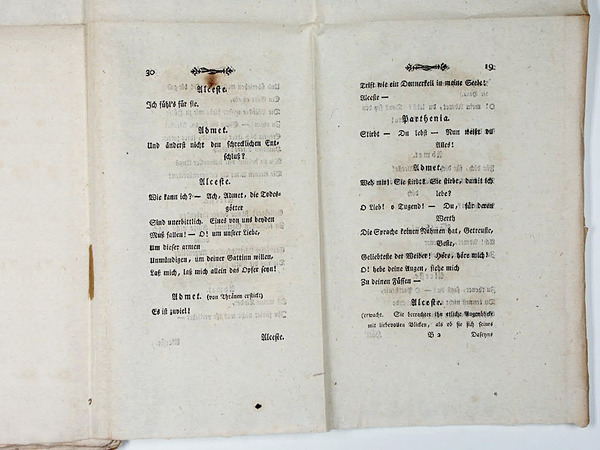 30
Alceste.
Ich fühl's für sie.
Admet.
Und änderst nicht den schrecklichen Ent-
schluß?
Alceste.
Wie kann ich? — Ach, Admet, die Todes-
götter
Sind unerbittlich. Eines von uns beyden
Muß fallen! — O! um unsrer Liebe,
Um dieser armen
Unmündigen, um deiner Gattinn willen,
Laß mich, laß mich allein das Opfer seyn!
Admet. (von Thränen erstickt)
Es ist zuviel!
Alceste.
19
Trift wie ein Donnerkeil in meine Seele!
Alceste —
Parthenia.
Stirbt — Du lebst — Nun weißt du
Alles!
Admet.
Weh mir! Sie stirbt! Sie stirbe, damit ich
lebe?
O Lieb! o Tugend! — Du, für deren
Werth
Die Sprache keinen Nahmen hat, Getreuste,
Beste,
Geliebteste der Weiber! Höre, höre mich!
O! hebe deine Augen, siehe mich
Zu deinen Füssen —
Alceste.
(erwacht. Sie betrachtet ihn etliche Augenblicke
mit liebevollen Blicken, als ob sie sich seines
B 2 Daseyns